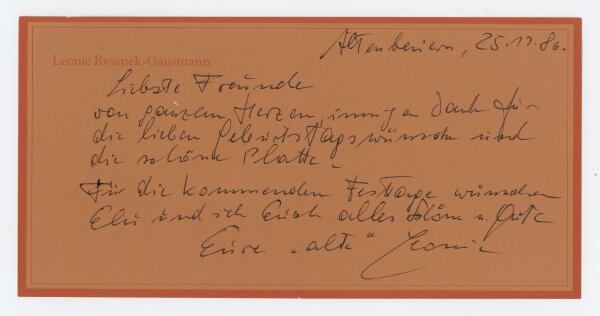 Altenbeuern, 25.11.86.
Leonie Rysanek-Gausmann
Liebste Freunde
von ganzem Herzen, innigen Dank für
die lieben Geburtstagswünsche und
die schöne Platte –
Für die kommenden Festtage wünschen
Elu und ich Euch alles Schöne u. Gute
Eure "alte" Leonie